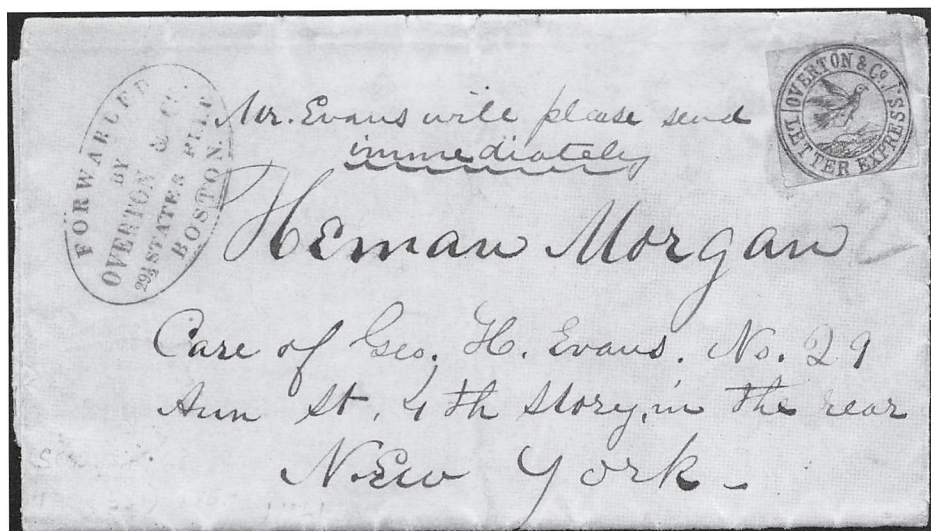 FORWARDED
BY
OVERTON & Co.
29½ STATE STREET.
BOSTON.
OVERTON & Co.'s
LETTER EXPRESS
Mr. Evans will please send
immediately
Heman Morgan
Care of Geo. H. Evans. No. 29
Ann St. 4th Story, in the rear
New York -